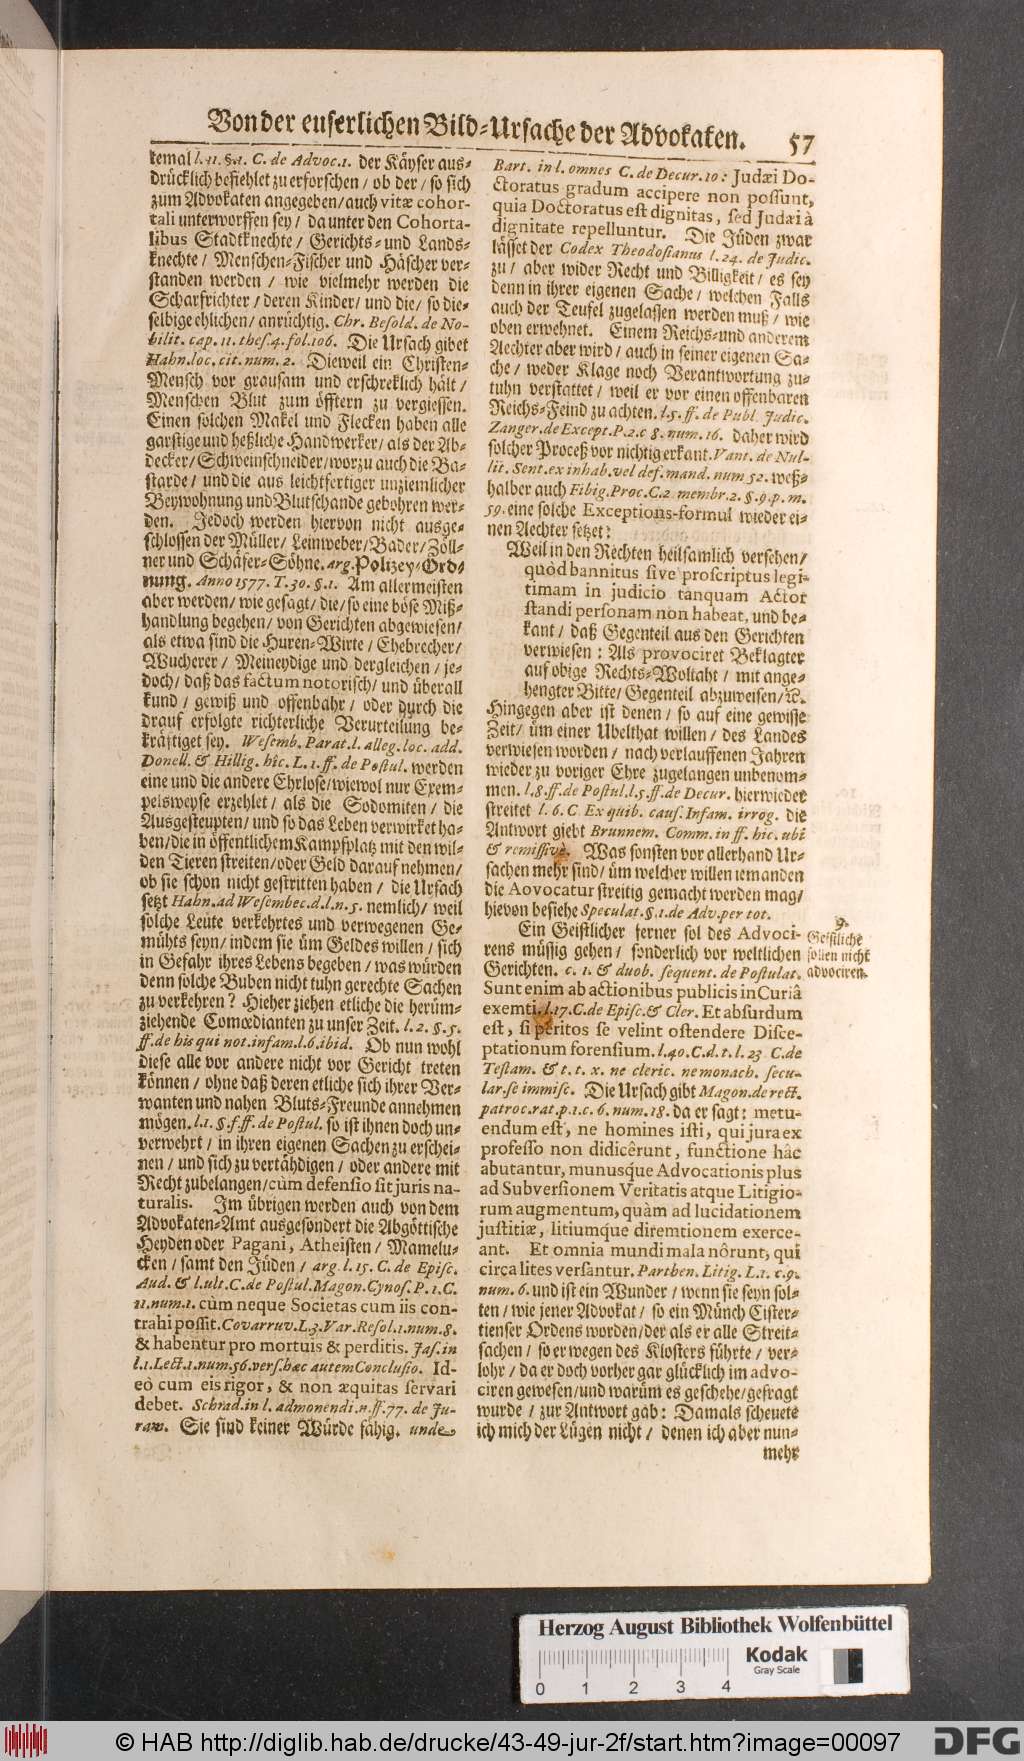 Von der euserlichen Bild-Ursache der Advokaten. 57
temal l. 11. §. 1. C. de Advoc. 1. der Käyser aus-
drücklich befiehlet zu erforschen / ob der / so sich
zum Advokaten angegeben / auch vitæ cohor-
tali unterworffen sey / da unter den Cohorta-
libus Stadtknechte / Gerichts- und Lands-
knechte / Menschen-Fischer und Häscher ver-
standen werden / wie vielmehr werden die
Scharfrichter / deren Kinder / und die / so die-
selbige ehlichen / anrüchtig. Chr. Besold. de No-
bilit. cap. 11. thes. 4. fol. 106. Die Ursach gibet
Hahn. loc. cit. num. 2. Dieweil ein Christen-
Mensch vor grausam und erschreklich hält /
Menschen Blut zum öfftern zu vergiessen.
Einen solchen Makel und Flecken haben alle
garstige und heßliche Handwerker / als der Ab-
decker / Schweinschneider / worzu auch die Ba-
starde / und die aus leichtfertiger unziemlicher
Beywohnung und Blutschande gebohren wer-
den. Jedoch werden hiervon nicht ausge-
schlossen der Müller / Leinweber / Bader / Zöll-
ner und Schäfer-Söhne. arg. Polizey-Ord-
nung. Anno 1577. T. 30. §. 1. Am allermeisten
aber werden / wie gesagt / die / so eine böse Miß-
handlung begehen / von Gerichten abgewiesen /
als etwa sind die Huren-Wirte / Ehebrecher /
Wucherer / Meineydige und dergleichen / je-
doch / daß das factum notorisch / und überall
kund / gewiß und offenbahr / oder durch die
drauf erfolgte richterliche Verurteilung be-
kräftiget sey. Wesemb. Parat. l. alleg. loc. add.
Donell. & Hillig. hîc. L. 1. ff. de Postul. werden
eine und die andere Ehrlose / wiewol nur Exem-
pelsweyse erzehlet / als die Sodomiten / die
Ausgesteupten / und so das Leben verwirket ha-
ben / die in öffentlichem Kampfplatz mit den wil-
den Tieren streiten / oder Geld darauf nehmen /
ob sie schon nicht gestritten haben / die Ursach
setzt Hahn. ad Wesembec. d. l. n. 5. nemlich / weil
solche Leute verkehrtes und verwegenen Ge-
mühts seyn / indem sie üm Geldes willen / sich
in Gefahr ihres Lebens begeben / was würden
denn solche Buben nicht tuhn gerechte Sachen
zu verkehren? Hieher ziehen etliche die herüm-
ziehende Comœdianten zu unser Zeit. l. 2. §. 5.
ff. de his qui not. infam. l. 6. ibid. Ob nun wohl
diese alle vor andere nicht vor Gericht treten
können / ohne daß deren etliche sich ihrer Ver-
wanten und nahen Bluts-Freunde annehmen
mögen. l. 1. §. f. ff. de Postul. so ist ihnen doch un-
verwehrt / in ihren eigenen Sachen zu erschei-
nen / und sich zu vertähdigen / oder andere mit
Recht zubelangen / cùm defensio sit juris na-
turalis. Im übrigen werden auch von dem
Advokaten-Amt ausgesondert die Abgöttische
Heyden oder Pagani, Atheisten / Mamelu-
cken / samt den Jüden / arg. l. 15. C. de Episc.
Aud. & l. ult. C. de Postul. Magon. Cynos. P. 1. C.
11. num. 1. cùm neque Societas cum iis con-
trahi possit. Covarruv. L. 3. Var. Resol. 1. num. 8.
& habentur pro mortuis & perditis. Jas. in
l. 1. Lect. 1. num. 56. vers. hæc autem Conclusio. Id-
eò cum eis rigor, & non æquitas servari
debet. Schrad. in l. admonendi. n. ff. 77. de Ju-
ram. Sie sind keiner Würde fähig. unde
Bart. in l. omnes C. de Decur. 10: Judæi Do-
ctoratus gradum accipere non possunt,
quia Doctoratus est dignitas, sed Judæi à
dignitate repelluntur. Die Jüden zwar
lässet der Codex Theodosianus l. 24. de Judic.
zu / aber wider Recht und Billigkeit / es sey
denn in ihrer eigenen Sache / welchen Falls
auch der Teufel zugelassen werden muß / wie
oben erwehnet. Einem Reichs- und anderem
Aechter aber wird / auch in seiner eigenen Sa-
che / weder Klage noch Verantwortung zu-
tuhn verstattet / weil er vor einen offenbaren
Reichs-Feind zu achten. l. 5. ff. de Publ. Judic.
Zanger. de Except. P. 2. c 8. num. 16. daher wird
solcher Proceß vor nichtig erkant. Vant. de Nul-
lit. Sent. ex inhab. vel def. mand. num 52. weß-
halber auch Fibig. Proc. C. 2. membr. 2. §. 9. p. m.
59. eine solche Exceptions-formul wieder ei-
nen Aechter setzet:
Weil in den Rechten heilsamlich versehen /
quòd bannitus sive proscriptus legi-
timam in judicio tanquam Actor
standi personam non habeat, und be-
kant / daß Gegenteil aus den Gerichten
verwiesen: Als provociret Beklagter
auf obige Rechts-Woltaht / mit ange-
hengter Bitte / Gegenteil abzuweisen / ꝛc.
Hingegen aber ist denen / so auf eine gewisse
Zeit / üm einer Ubelthat willen / des Landes
verwiesen worden / nach verlauffenen Jahren
wieder zu voriger Ehre zugelangen unbenom-
men. l. 8. ff. de Postul. l. 5. ff. de Decur. hierwieder
streitet l. 6. C. Ex quib. caus. Infam. irrog. die
Antwort giebt Brunnem. Comm. in ff. hic. ubi
& remissivè. Was sonsten vor allerhand Ur-
sachen mehr sind / üm welcher willen iemanden
die Aovocatur streitig gemacht werden mag /
hievon besiehe Speculat. §. 1. de Adv. per tot.
Ein Geistlicher ferner sol des Advoci-
rens müssig gehen / sonderlich vor weltlichen
Gerichten. c. 1. & duob. sequent. de Postulat.
Sunt enim ab actionibus publicis in Curiâ
exemti. l. 17. C. de Episc. & Cler. Et absurdum
est, si peritos se velint ostendere Disce-
ptationum forensium. l. 40. C. d. t. l. 23 C. de
Testam. & t. t. x. ne cleric. ne monach. secu-
lar. se immisc. Die Ursach gibt Magon. de rect.
patroc. rat. p. 1. c. 6. num. 18. da er sagt: metu-
endum est, ne homines isti, qui jura ex
professo non didicêrunt, functione hâc
abutantur, munusque Advocationis plus
ad Subversionem Veritatis atque Litigio-
rum augmentum, quàm ad lucidationem
justitiæ, litiumque diremtionem exerce-
ant. Et omnia mundi mala nôrunt, qui
circa lites versantur. Parthen. Litig. L. 1. c. 9.
num. 6. und ist ein Wunder / wenn sie seyn sol-
ten / wie jener Advokat / so ein Münch Cister-
tienser Ordens worden / der als er alle Streit-
sachen / so er wegen des Klosters führte / ver-
lohr / da er doch vorher gar glücklich im advo-
ciren gewesen / und warüm es geschehe / gefragt
wurde / zur Antwort gab: Damals scheuete
ich mich der Lügen nicht / denen ich aber nun-
mehr
9.
Geistliche
sollen nicht
advociren.
Herzog August Bibliothek Wolfenbüttel
Kodak
Gray Scale
0 1 2 3 4
© HAB http://diglib.hab.de/drucke/43-49-jur-2f/start.htm?image=00097
DFG